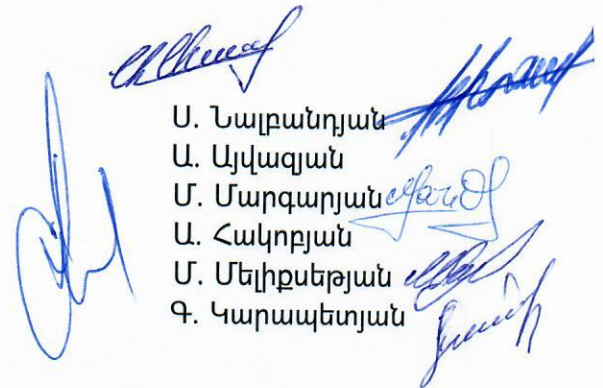 Ս. Նալբանդյան
Ա. Այվազյան
Մ. Մարգարյան
Ա. Հակոբյան
Մ. Մելիքսեթյան
Գ. Կարապետյան